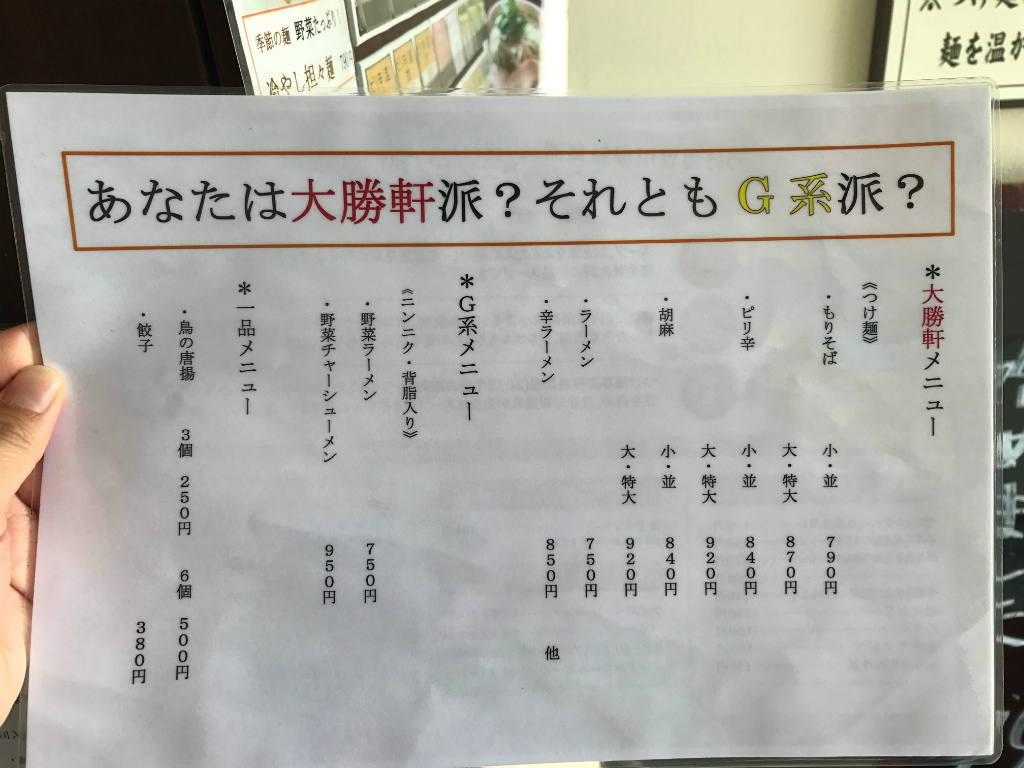 季節の麺 野菜たっぷり!
冷やし担々麺
麺を温か
あなたは大勝軒派？それともＧ系派？
＊大勝軒メニュー
《つけ麺》
・もりそば 小・並 ７９０円
大・特大 ８７０円
・ピリ辛 小・並 ８４０円
大・特大 ９２０円
・胡麻 小・並 ８４０円
大・特大 ９２０円
・ラーメン ７５０円
・辛ラーメン ８５０円 他
＊Ｇ系メニュー
《ニンニク・背脂入り》
・野菜ラーメン ７５０円
・野菜チャーシューメン ９５０円
＊一品メニュー
・鳥の唐揚 ３個 ２５０円 ６個 ５００円
・餃子 ３８０円